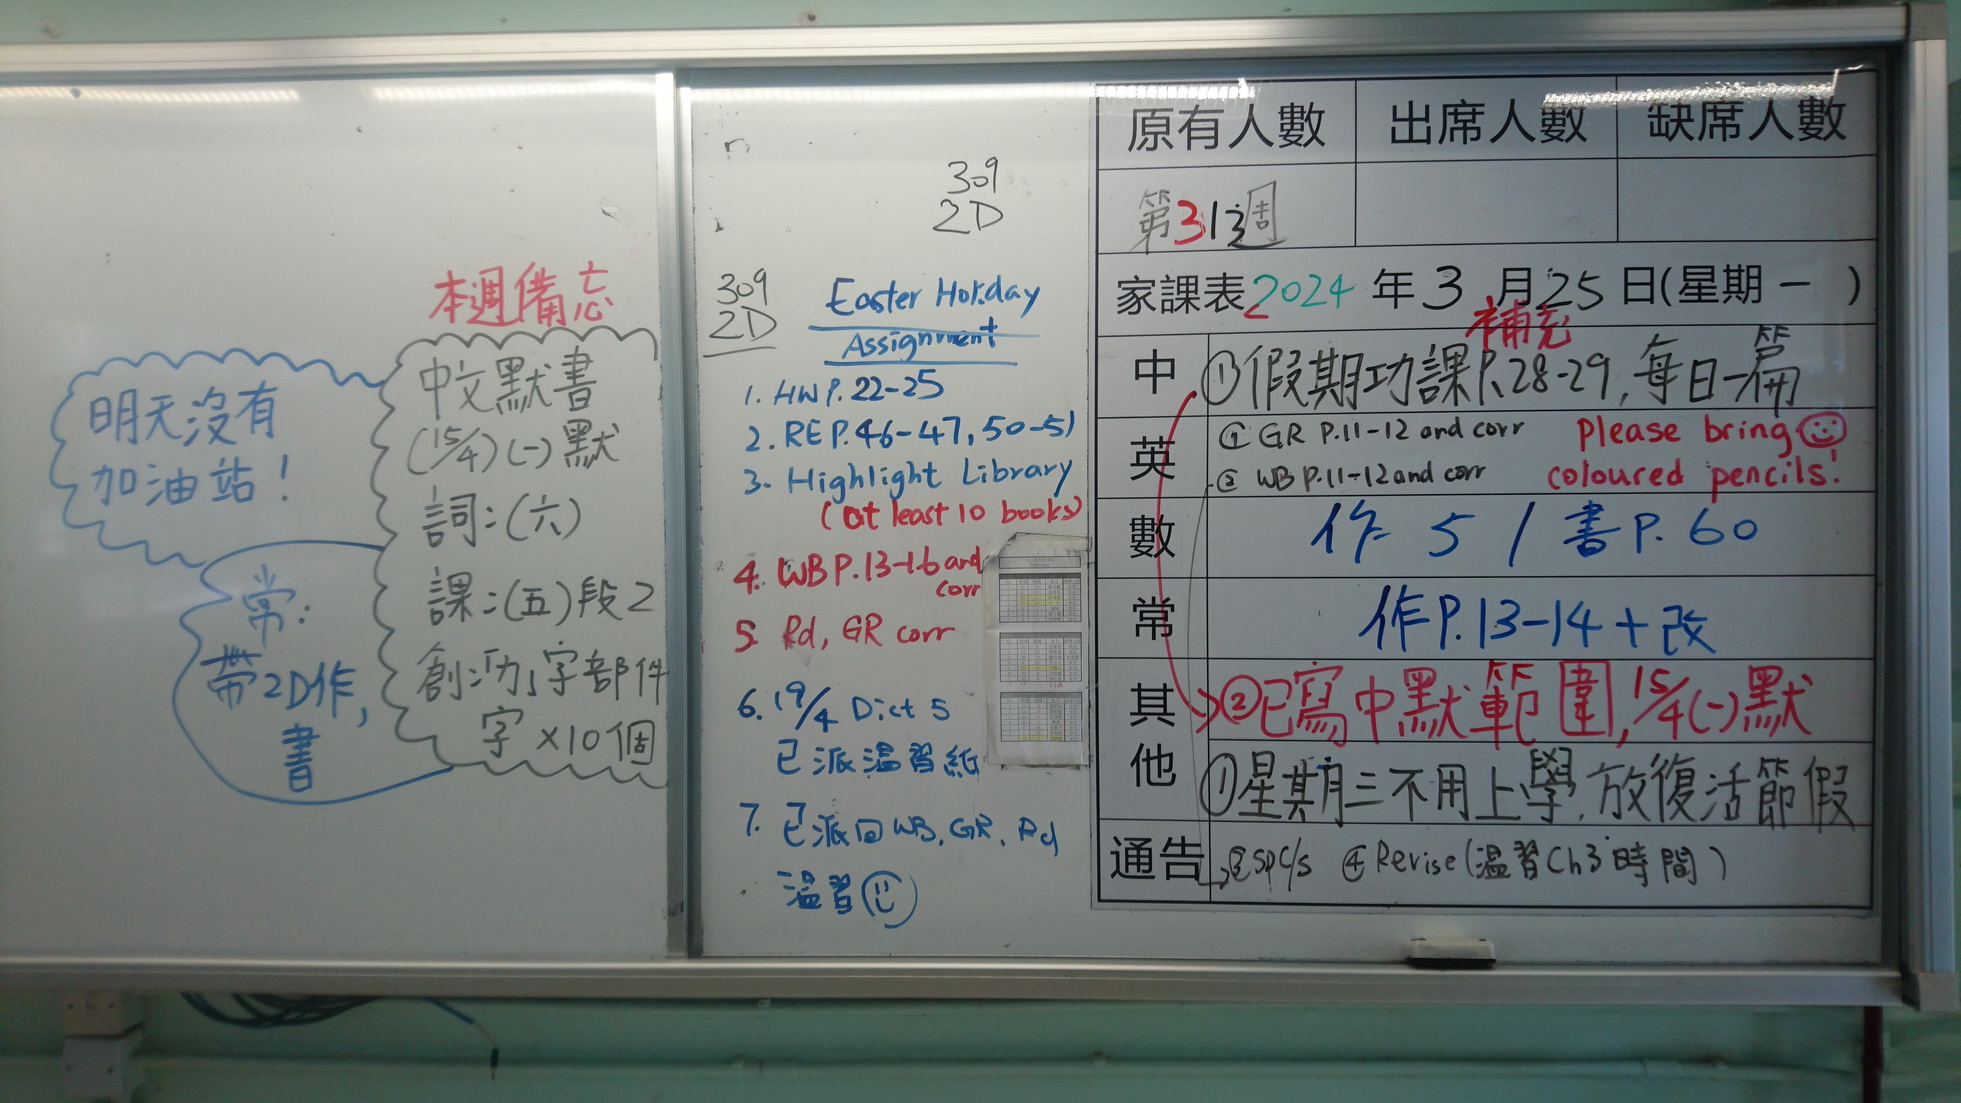 本週備忘
明天沒有
加油站！
常：
帶2D作，
書
中文默書
(15/4)(一)默
詞：(六)
課：(五)段2
字×10個
309
2D
309
2D
Easter Holiday
Assignment
1. HW P.22-25
2. RE P.46-47, 50-51
3. Highlight Library
(at least 10 books)
4. WB P.13-16 and
corr
5. Rd, GR corr
6. 19/4 Dict 5
已派溫習紙
7. 已派回 WB, GR, Rd
溫習
原有人數 出席人數 缺席人數
第313週
家課表2024年3月25日(星期一)
補充
中 ①假期功課P.28-29,每日一篇
英 ① GR P.11-12 and corr
② WB P.11-12 and corr
Please bring
coloured pencils!
數 作 5 / 書P. 60
常 作P.13-14+改
其他 ②已寫中默範圍,15/4(一)默
①星期三不用上學,放復活節假
通告 ④Revise(溫習Ch3時間)